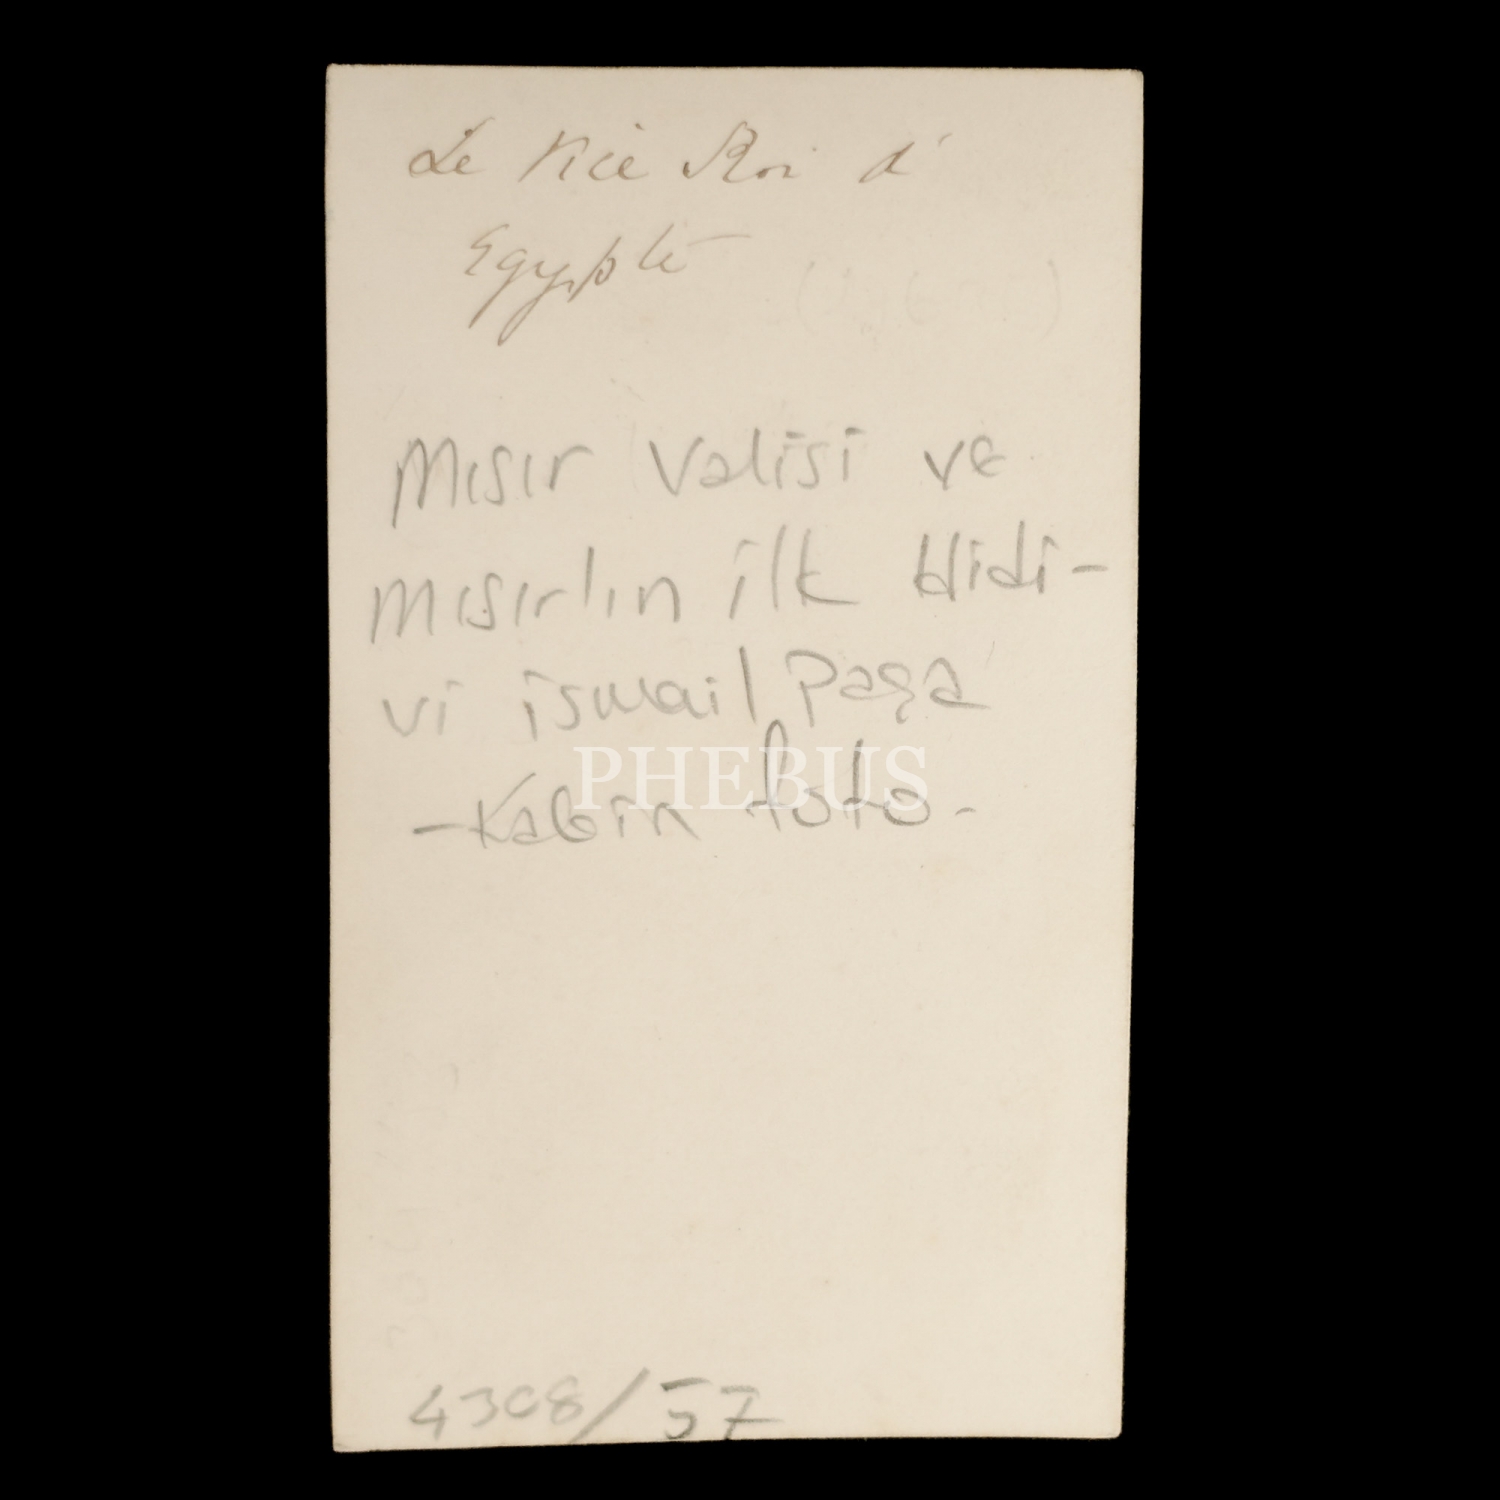 Le Vice Roi d'
Egypte
Mısır Valisi ve
mısır'ın ilk Hidi-
vi ismail paşa
PHEBUS
-Kabin foto-
4308/57